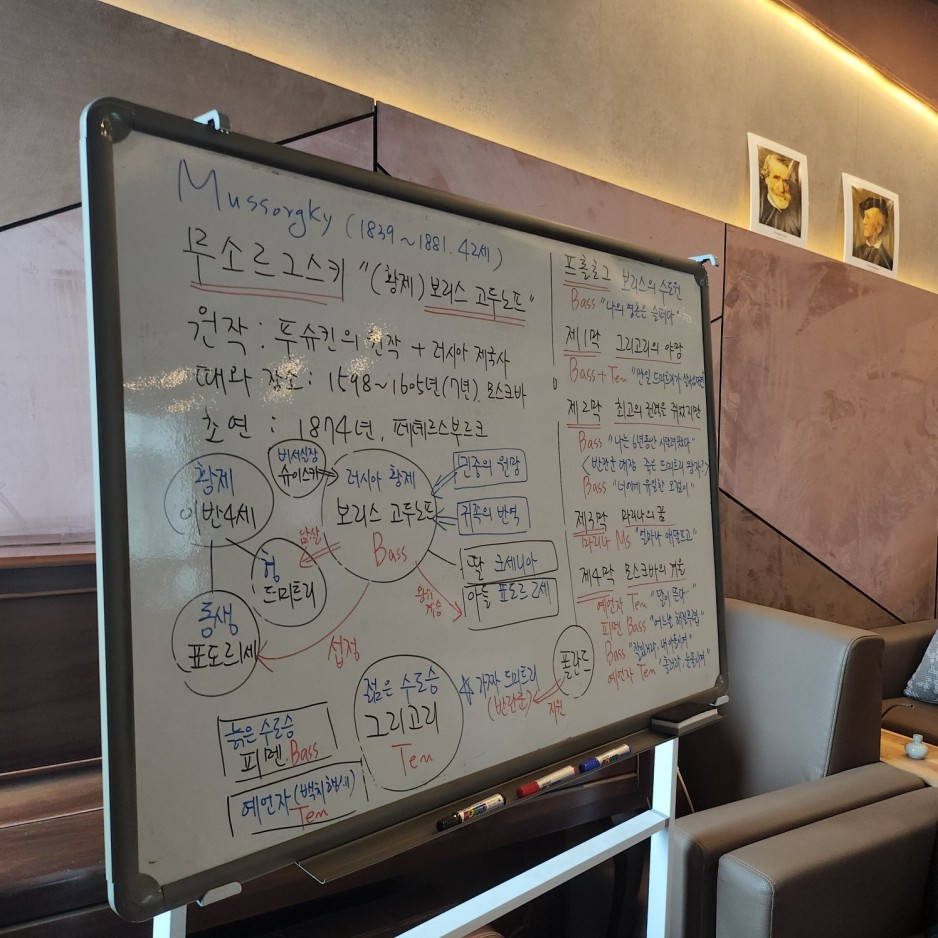 Mussorgky (1839~1881. 42세)
무소르그스키 "(황제) 보리스 고두노프"
원작 : 푸슈킨의 원작 + 러시아 제국사
때와 장소 : 1598~1605년(7년), 모스크바
초연 : 1874년, 페테르스부르크
황제
이반4세
비서실장
슈이스키
러시아 황제
보리스 고두노프
Bass
귀족의 반역
딸 크세니아
아들 표도르2세
암살
형
드미트리
왕위
계승
동생
표도르1세
섭정
젊은 수도승
그리고리
Ten
가짜 드미트리
(반란군)
지원
폴란드
늙은 수도승
피멘.Bass
예언자(백치행세)
Ten
프롤로그 보리스의 수도원
Bass "나의 영혼은 슬프다"
제1막 그리고리의 야망
Bass+Ten "만일 드미트리가
제2막 최고의 권력을 쥐었지만
Bass "나는 6년동안
<반란군 대장 죽은 드미트리 왕자?>
Bass "너에게 유일한
제3막 마리나의 꿈
마리나 Ms "얼마나 애달프고"
제4막 모스크바의 겨울
예언자 Ten "달이 뜬다"
피멘 Bass "어느날 해질무렵"
Bass "잘있거라, 내 아들이여"
예언자 Ten "흘러라, 눈물이여"